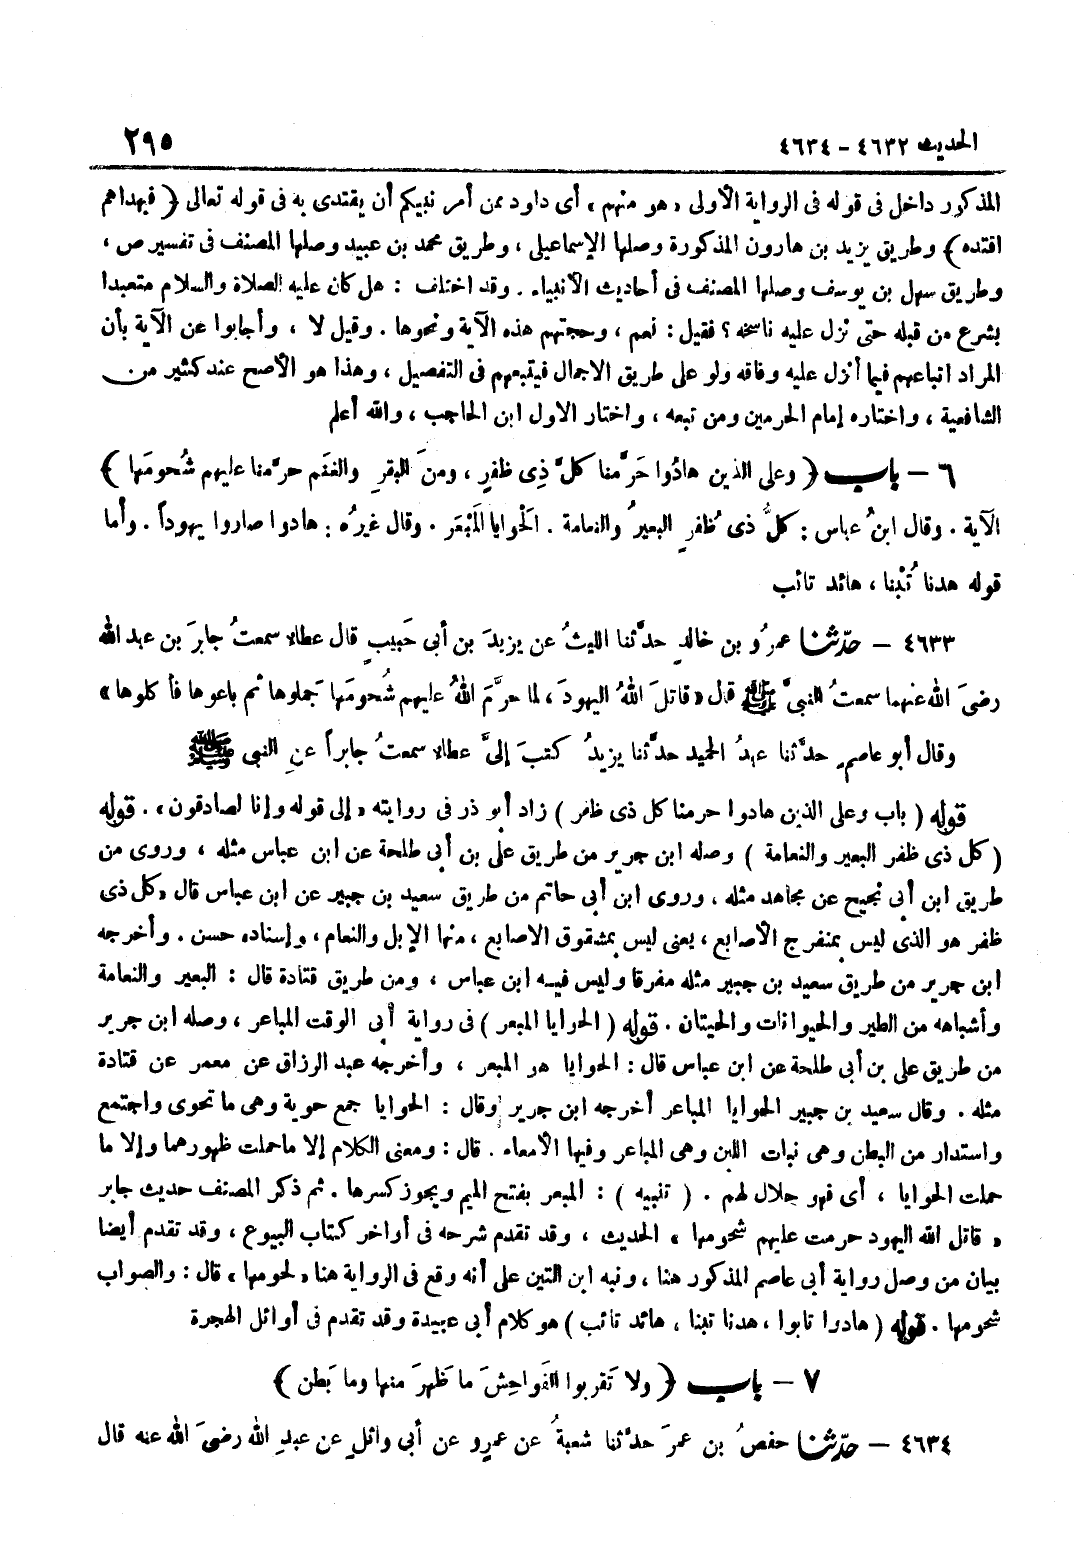 الحديث ٤٦٣٢ - ٤٦٣٤
٢٩٥
المذكور داخل فى قوله فى الرواية الأولى «هو منهم» أى داود ممن أمر نبيكم أن يقتدى به فى قوله تعالى ﴿ فبهداهم
اقتده ﴾ وطريق يزيد بن هارون المذكورة وصلها الإسماعيلى ، وطريق محمد بن عبيد وصلها المصنف فى تفسير ص ،
وطريق سهل بن يوسف وصلها المصنف فى أحاديث الأنبياء . وقد اختلف : هل كان عليه الصلاة والسلام متعبدا
بشرع من قبله حتى نزل عليه ناسخه ؟ فقيل : نعم ، وحجتهم هذه الآية ونحوها . وقيل لا ، وأجابوا عن الآية بأن
المراد اتباعهم فيما أنزل عليه وفاقه ولو على طريق الاجمال فيتبعهم فى التفصيل ، وهذا هو الأصح عند كثير من
الشافعية ، واختاره إمام الحرمين ومن تبعه ، واختار الاول ابن الحاجب ، والله أعلم
٦ - باب ﴿ وعلى الذين هادُوا حَرَّمنا كلَّ ذِى ظفرٍ ، ومنَ البقرِ والغنَم حرَّمنا عليهم شُحومَها ﴾
الآية . وقال ابنُ عباس : كلُّ ذى ظُفرٍ البعيرُ والنعامة . الحَوايا المَبْعَر . وقال غيرُه : هادوا صاروا يهوداً . وأما
قوله هدنا تُبْنا ، هائد تائب
٤٦٣٣ - حدّثنا عمرُو بن خالدٍ حدَّثنا الليثُ عن يزيدَ بن أبى حَبيبٍ قال عطاء سمعتُ جابرَ بن عبد الله
رضىَ الله عنهما سمعتُ النبىَّ ﷺ قال «قاتلَ اللهُ اليهودَ ، لما حرَّمَ اللهُ عليهم شُحومَها جَملوها ثم باعوها فأكلوها»
وقال أبو عاصمٍ حدَّثنا عبدُ الحميد حدَّثنا يزيدُ كتبَ إلىَّ عطاء سمعتُ جابراً عنِ النبى ﷺ
قوله ( باب وعلى الذين هادوا حرمنا كل ذى ظفر ) زاد أبو ذر فى روايته «إلى قوله وإنا لصادقون» . قوله
( كل ذى ظفر البعير والنعامة ) وصله ابن جرير من طريق على بن أبى طلحة عن ابن عباس مثله ، وروى من
طريق ابن أبى نجيح عن مجاهد مثله . وروى ابن أبى حاتم من طريق سعيد بن جبير عن ابن عباس قال «كل ذى
ظفر هو الذى ليس بمنفرج الأصابع ، يعنى ليس بمشقوق الاصابع ، منها الإبل والنعام ، وإسناده حسن . وأخرجه
ابن جرير من طريق سعيد بن جبير مثله مفرقا وليس فيه ابن عباس ، ومن طريق قتادة قال : البعير والنعامة
وأشباهه من الطير والحيوانات والحيتان . قوله ( الحوايا المبعر ) فى رواية أبى الوقت المباعر ، وصله ابن جرير
من طريق على بن أبى طلحة عن ابن عباس قال : الحوايا هو المبعر ، وأخرجه عبد الرزاق عن معمر عن قتادة
مثله . وقال سعيد بن جبير الحوايا المباعر أخرجه ابن جرير وقال : الحوايا جمع حوية وهى ما تحوى واجتمع
واستدار من البطن وهى نبات اللبن وهى المباعر وفيها الأمعاء . قال : ومعنى الكلام إلا ما حملت ظهورهما وإلا ما
حملت الحوايا ، أى فهو حلال لهم . ( تنبيه ) : المبعر بفتح الميم ويجوز كسرها . ثم ذكر المصنف حديث جابر
« قاتل الله اليهود حرمت عليهم شحومها » الحديث ، وقد تقدم شرحه فى أواخر كتاب البيوع ، وقد تقدم أيضا
بيان من وصل رواية أبى عاصم المذكور هنا ، ونبه ابن التين على أنه وقع فى الرواية هنا «لحومها» قال : والصواب
شحومها . قوله ( هادوا تابوا ، هدنا تبنا ، هائد تائب ) هو كلام أبى عبيدة وقد تقدم فى أوائل الهجرة
٧ - باب ﴿ ولا تَقربوا الفَواحِشَ ما ظَهرَ منها وما بَطن ﴾
٤٦٣٤ - حدّثنا حفصُ بن عمرَ حدَّثنا شعبةُ عن عمرٍو عن أبى وائلٍ عن عبدِ الله رضىَ الله عنه قال